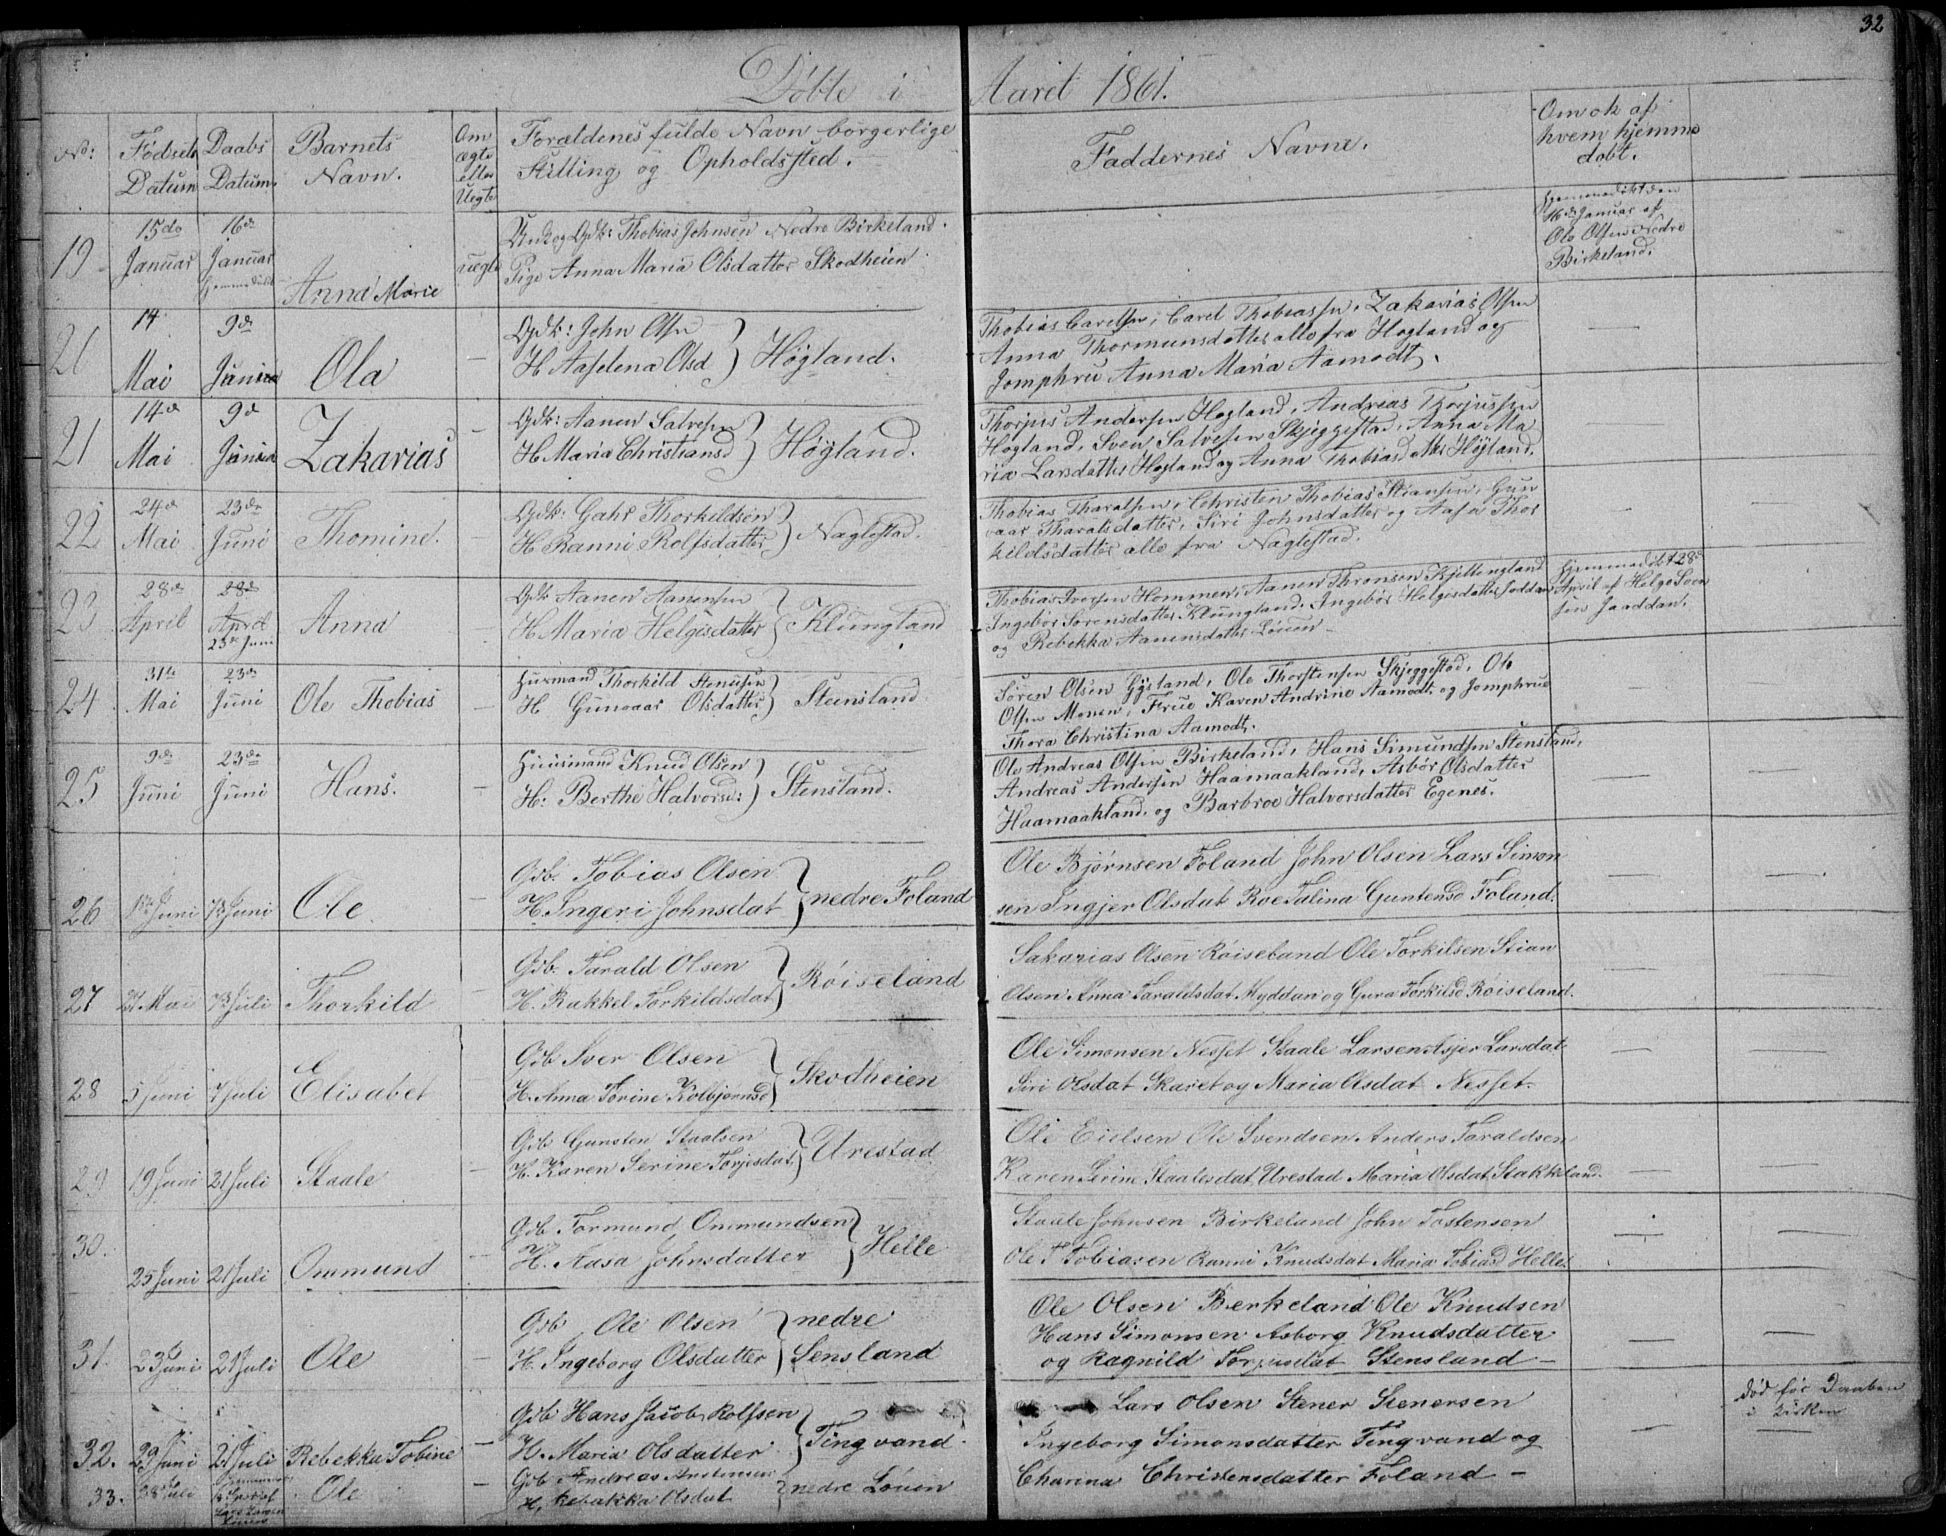 32
Döbte i Aaret 1861.
No: Födsels Datum Daabs Datum. Barnets Navn. Om ægte eller Uegte Forældenes fulde Navn borgerlige Stilling og Opholdssted. Faddernes Navne. Om ok af hvem hjemme dobt.
19 15de Januar 16de Januar Anna Marie uegte Thobias Johnsen Nedre Birkeland.
Pige Anna Maria Olsdatter Skodheien
Hjemmedöbt den
16de Januar af
Ole Olsen Nedre
Birkeland.
21 14 Mai 9de Juni Ola — Gdb: John Olsen
H Aaselena Olsd } Høgland.
Thobias Carelsen, Carel Thobiassen, Zakarias Olsen
Anna Thormunsdatter alle fra Høgland og
Jomphru Anna Maria Aamodt.
21 14d Mai 9d Juni Zakarias — Gdb: Aanen Salvesen
H. Maria Christiansd } Høgland.
Thorjus Andersen Hogland, Andreas Thorjussen
Hogland, Sven Salvesen Skjeggestad, Anna Ma
ria Larsdatter Hogland og Anna Thobiasdatter Høyland.
22 24d Mai 23de Juni Thomine. — Gdb: Gahr Thorkildsen
H Ranni Rolfsdatter } Naglestad.
Thobias Tharalsen, Christen Thobias Stiansen, Gun
vaar Tharalsdatter, Siri Johnsdatter og Aase Thor
kildsdatter alle fra Naglestad.
23 28de April 28de April 23de Juni Anna — Gdb Aanen Aanensen
H Maria Helgesdatter } Klungland
Thobias Iversen Hommen, Aanen Thronsen Kjetlengland
Ingebor Sörensdatter Klungland, Ingebor Helgesdatter Joddan
og Rebekka Aanensdatter Löuen
Hjemmedöbt 28d
April af Helge Sven
sen Jaaddan.
24 31te Mai 23de Juni Ole Thobias — Husmand Thorkild Stenersen
H Gunvaar Olsdatter } Steensland
Sören Olsen Gysland, Ole Thorstensen Skjeggestad, Ole
Olsen Monen, Frue Karen Andrine Aamodt og Jomphrue
Thora Christina Aamodt.
25 9de Juni 23de Juni Hans. — Husmand Knud Olsen
H: Berthe Halvorsd: } Stensland.
Ole Andreas Olsen Birkeland, Hans Simundsen Stensland,
Andreas Andersen Haamaakland, Asbör Olsdatter
Haamaakland, og Barbroe Halvorsdatter Egenes.
26 Juni Juni Ole — Gdb. Tobias Olsen
H Ingeri Johnsdat } nedre Foland
Ole Bjørnsen Foland John Olsen Lars Simon
sen Ingjer Olsdat Roe Talina Guntensd Foland.
27 Mai Juli Thorkild — Gdb. Tarald Olsen
H. Rakkel Torkildsdat } Röiseland
Sakarias Olsen Roiseland Ole Torkilsen Stian
Olsen Anna Taraldsdat Myddan og Gura Torkilsd Röiseland.
28 5 Juni 7 Juli Elisabet — Gdb Iver Olsen
H. Anna Torine Kolbjørnsd } Skodheien
Ole Simonsen Nesset Staale Larsen Asjer Larsdat
Siri Olsdat Skaret og Maria Olsdat Nesset.
29 19 Juni 21 Juli Staale — Gdb Gunsten Staalsen
H. Karen Serine Torjesdat } Urestad
Ole Eielsen Ole Svendsen Anders Taraldsen
Karen Serine Staalesdat Urestad Maria Olsdat Stakkeland.
30. 25 Juni 21 Juli Ommund — Gdb. Tormund Ommundsen
H. Aasa Johnsdatter } Helle
Staale Johnsen Birkeland John Tostensen
Ole T Tobiasen Ranni Knudsdat Maria Tobiasd Helle.
31. 23 Juni 21 Juli Ole — Gdb Ole Olsen
H. Ingeborg Olsdatter } nedre Sensland
Ole Olsen Berkeland Ole Knudsen
Hans Simonsen Asborg Knudsdatter
og Ragnild Torjusdat Stensland —
32. 29 Juni 21 Juli Rebekka Tobine — Gdb Hans Jacob Rolfsen
H. Maria Olsdatter } Tingvand.
Lars Olsen Stener Stenersen
Ingeborg Simonsdatter Tingvand og
Charina Christensdatter Foland —
død før Daaben
i Kirken
33. Juli Ole — Gdb Andreas
H. Rebakka Olsdat } nedre Löuen